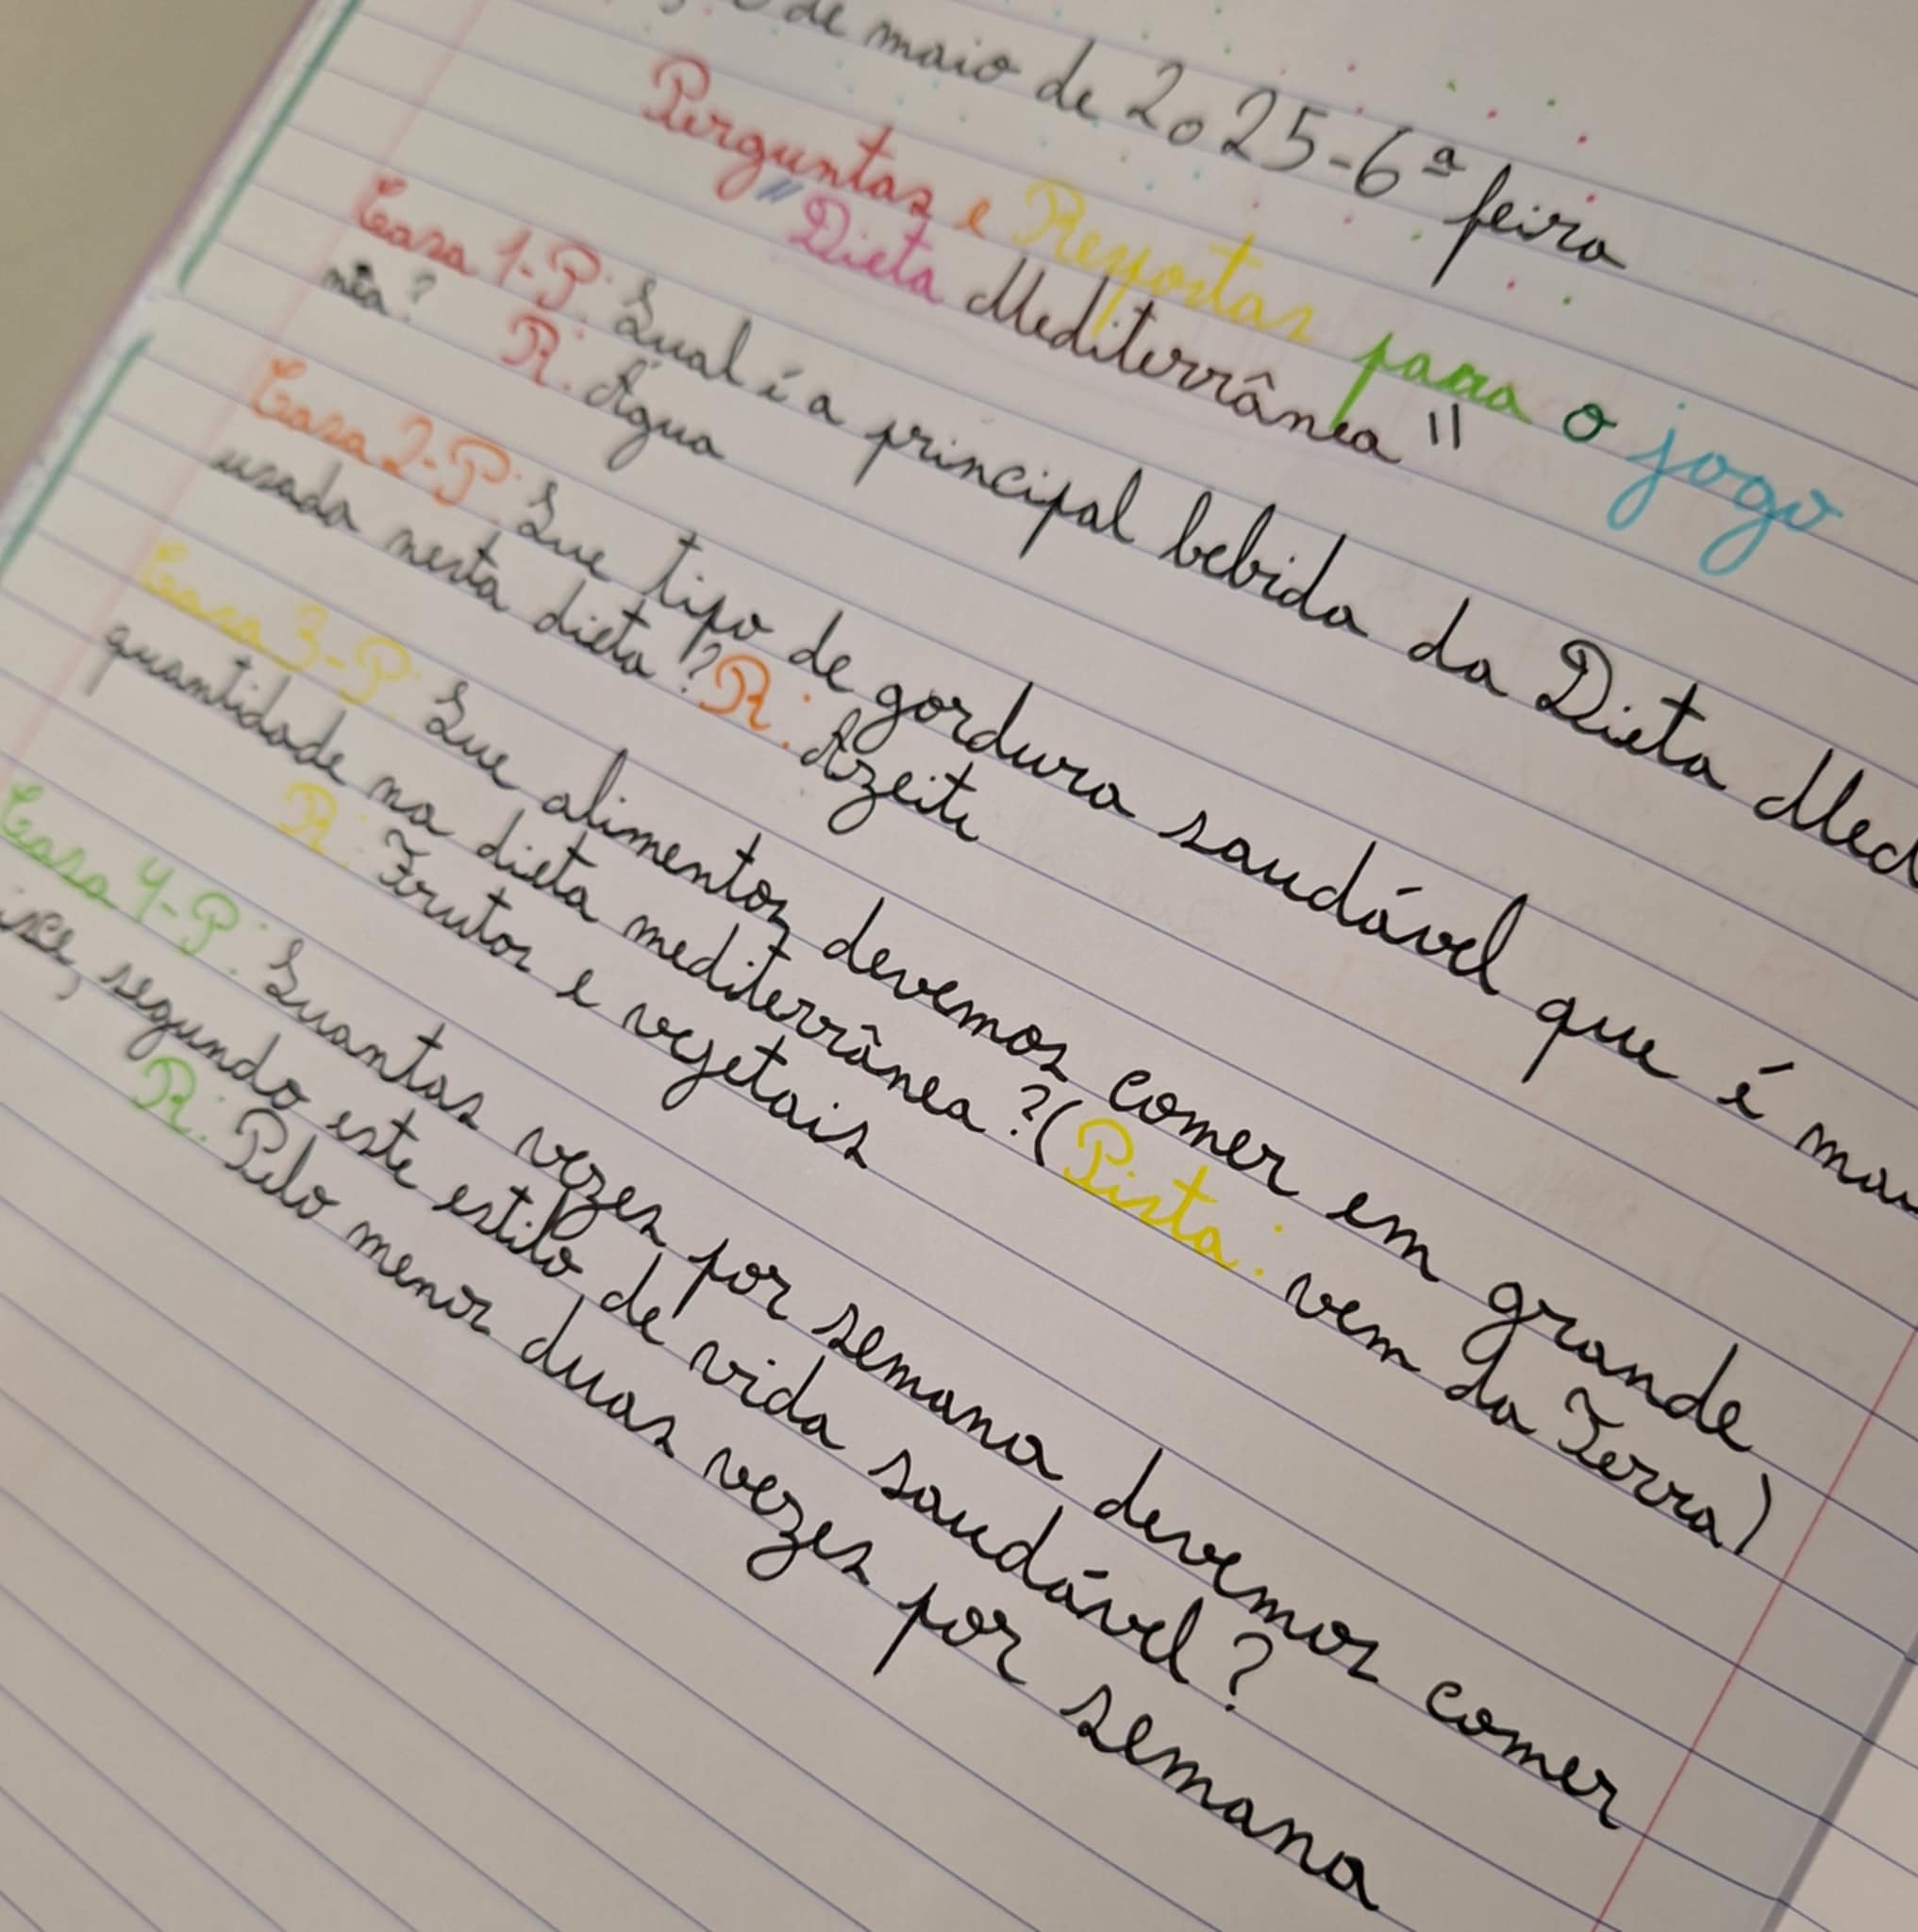 de maio de 2025-6ª feira
Perguntas e Respostas para o jogo
"Dieta Mediterrânea"
Casa 1-P: Qual é a principal bebida da Dieta Med
nea? R: Água
Casa 2-P: Que tipo de gordura saudável que é ma
usada nesta dieta? R: Azeite
Casa 3-P: Que alimentos devemos comer em grande
quantidade na dieta mediterrânea? (Pista: vem da Terra)
R: Frutos e vegetais
Casa 4-P: Quantas vezes por semana devemos comer
ixe, segundo este estilo de vida saudável?
R: Pelo menos duas vezes por semana